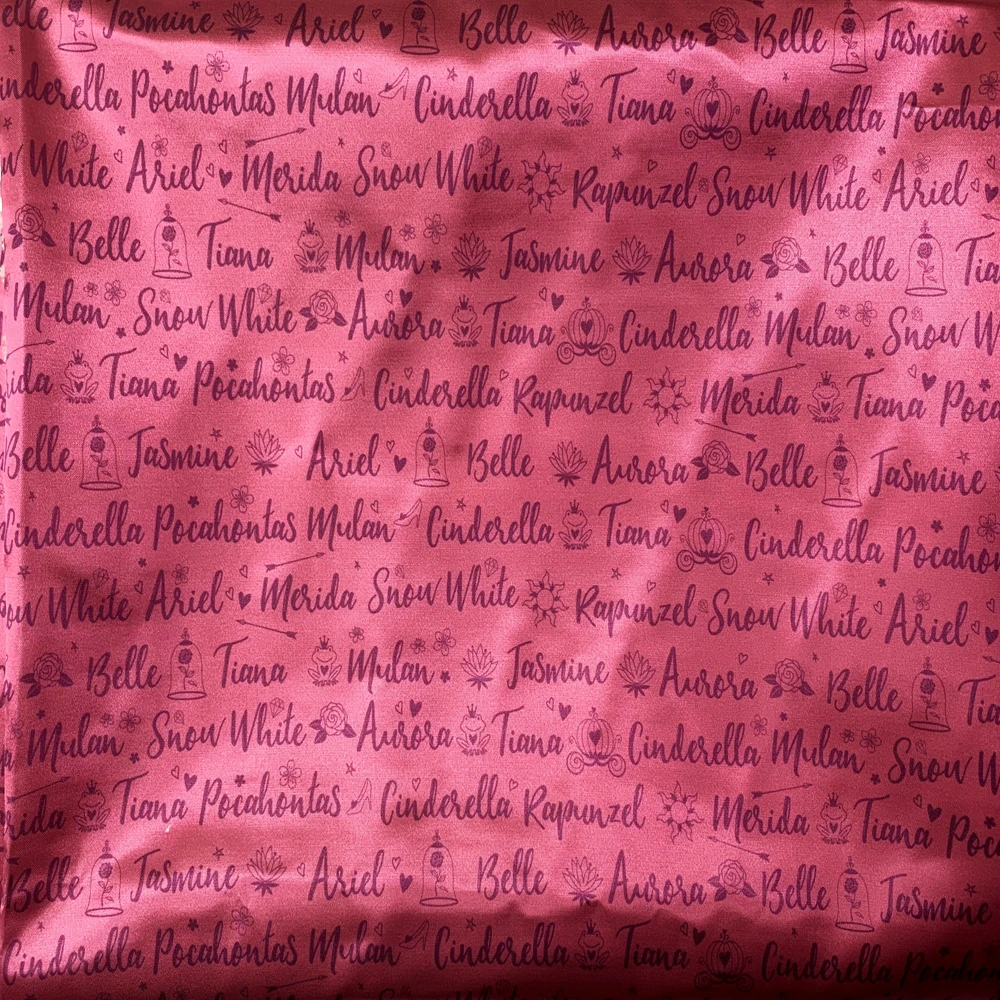 elle Jasmine Ariel Belle Aurora Belle Jasmine
inderella Pocahontas Mulan Cinderella Tiana Cinderella Pocaho
w White Ariel Merida Snow White Rapunzel Snow White Ariel
Belle Tiana Mulan Jasmine Aurora Belle Tia
Mulan Snow White Aurora Tiana Cinderella Mulan Snow W
rida Tiana Pocahontas Cinderella Rapunzel Merida Tiana Poca
Belle Jasmine Ariel Belle Aurora Belle Jasmine
Cinderella Pocahontas Mulan Cinderella Tiana Cinderella Pocahon
ow White Ariel Merida Snow White Rapunzel Snow White Ariel
a Belle Tiana Mulan Jasmine Aurora Belle Tia
a Mulan Snow White Aurora Tiana Cinderella Mulan Snow W
rida Tiana Pocahontas Cinderella Rapunzel Merida Tiana Poc
Belle Jasmine Ariel Belle Aurora Belle Jasmine
Cinderella Pocahontas Mulan Cinderella Tiana Cinderella Pocahon
Ariel Merida Snow White Rapunzel Snow White